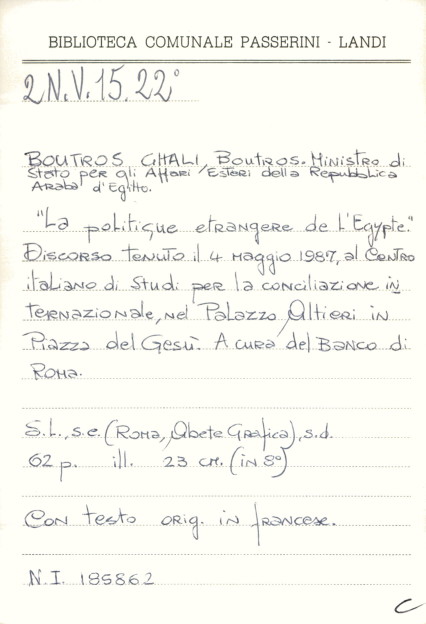 BIBLIOTECA COMUNALE PASSERINI - LANDI
2N.V.15.22°
BOUTROS GHALI, Boutros. Ministro di
Stato per gli Affari Esteri della Repubblica
Araba d'Egitto.
"La politique etrangere de l'Egypte."
Discorso tenuto il 4 maggio 1987, al Centro
italiano di Studi per la conciliazione in
ternazionale, nel Palazzo Altieri in
Piazza del Gesù. A cura del Banco di
Roma.
S.l., s.e. (Roma, Abete Grafica), s.d.
62 p. ill. 23 cm. (in 8°)
Con testo orig. in francese.
N.I. 185862
C